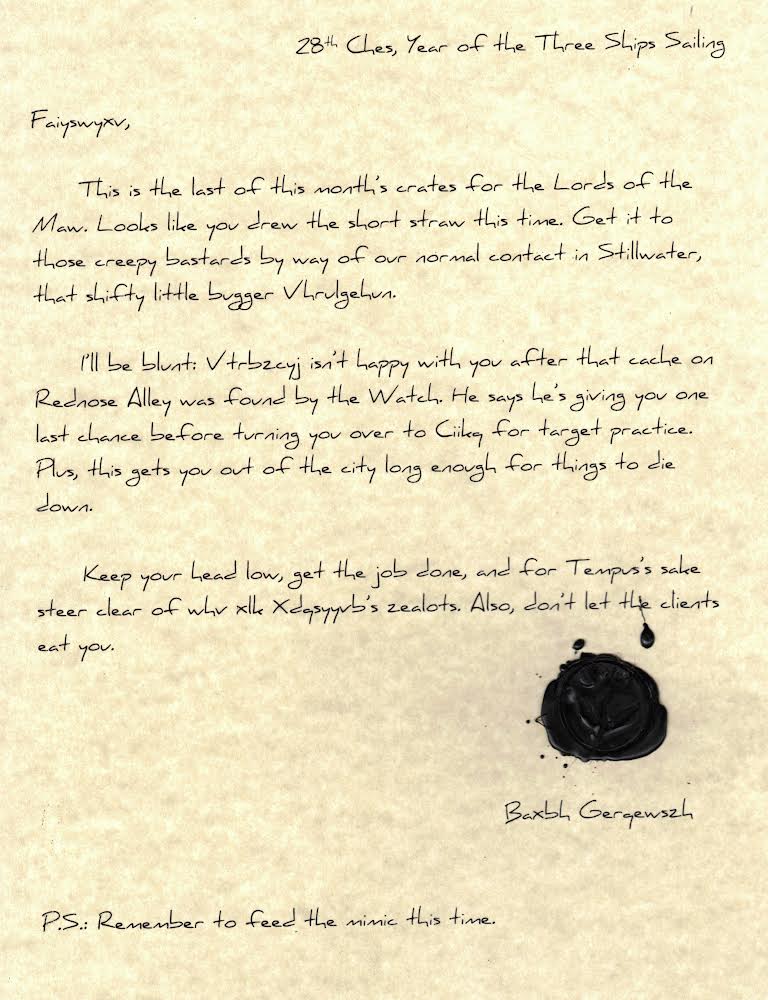 28th Ches, Year of the Three Ships Sailing
Faiyswyxv,
This is the last of this month's crates for the Lords of the
Maw. Looks like you drew the short straw this time. Get it to
those creepy bastards by way of our normal contact in Stillwater,
that shifty little bugger Vhrulgehun.
I'll be blunt: Vtrbzcyj isn't happy with you after that cache on
Rednose Alley was found by the Watch. He says he's giving you one
last chance before turning you over to Ciikq for target practice.
Plus, this gets you out of the city long enough for things to die
down.
Keep your head low, get the job done, and for Tempus's sake
steer clear of whv xlk Xdqsyyvb's zealots. Also, don't let the clients
eat you.
Baxbh Gerqewszh
P.S.: Remember to feed the mimic this time.